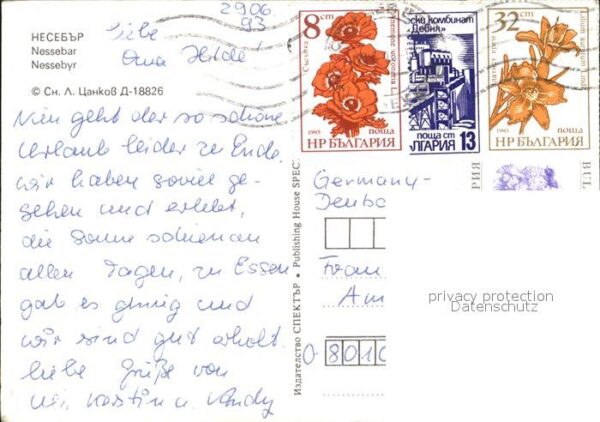 2906.
93
НЕСЕБЪР
Nessebar
Nessebyr
© Сн. Л. Цанков Д-18826
Liebe
Oma Heide!
Nun geht der so schöne
Urlaub leider zu Ende.
wir haben soviel ge-
sehen und erlebt,
die Sonne schien an
allen Tagen, zu Essen
gab es genug und
wir sind gut erholt.
liebe Grüße von
Kerstin u. Andy
8 ст
Съсънка
1985 поща
НР БЪЛГАРИЯ
ски комбинат
„Девня“
поща ст
ЛГАРИЯ 13
32 ст
1985 поща
НР БЪЛГАРИЯ
Издателство СПЕКТЪР • Publishing House SPEC
Germany-
Am
O-8010
privacy protection
Datenschutz